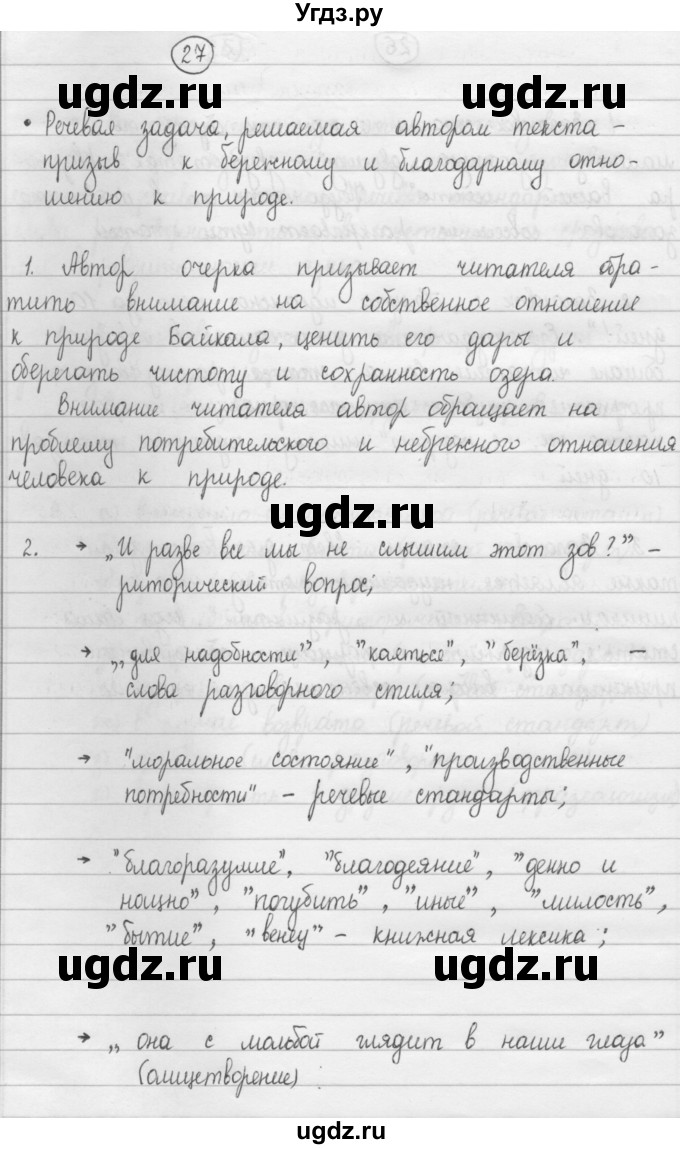 Угдз.ру
27
ugdz.ru ugdz.ru
• Речевая задача, решаемая автором текста –
призыв к бережному и благодарному отно-
шению к природе.
ugdz.ru
1. Автор очерка призывает читателя обра-
тить внимание на собственное отношение
к природе Байкала, ценить его дары и
оберегать чистоту и сохранность озера.
ugdz.ru ugdz.ru
Внимание читателя автор обращает на
проблему потребительского и небрежного отношения
человека к природе.
ugdz.ru
2. → „И разве все мы не слышим этот зов?” –
риторический вопрос;
ugdz.ru ugdz.ru
→ „для надобности”, "каяться", "берёзка", –
слова разговорного стиля;
ugdz.ru
→ "моральное состояние", "производственные
потребности" – речевые стандарты;
ugdz.ru ugdz.ru
→ "благоразумие", "благодеяние", "денно и
нощно", "погубить", "иные", "милость",
"бытие", "венец" – книжная лексика;
ugdz.ru ugdz.ru
→ „она с мольбой глядит в наши глаза”
(олицетворение)
ugdz.ru